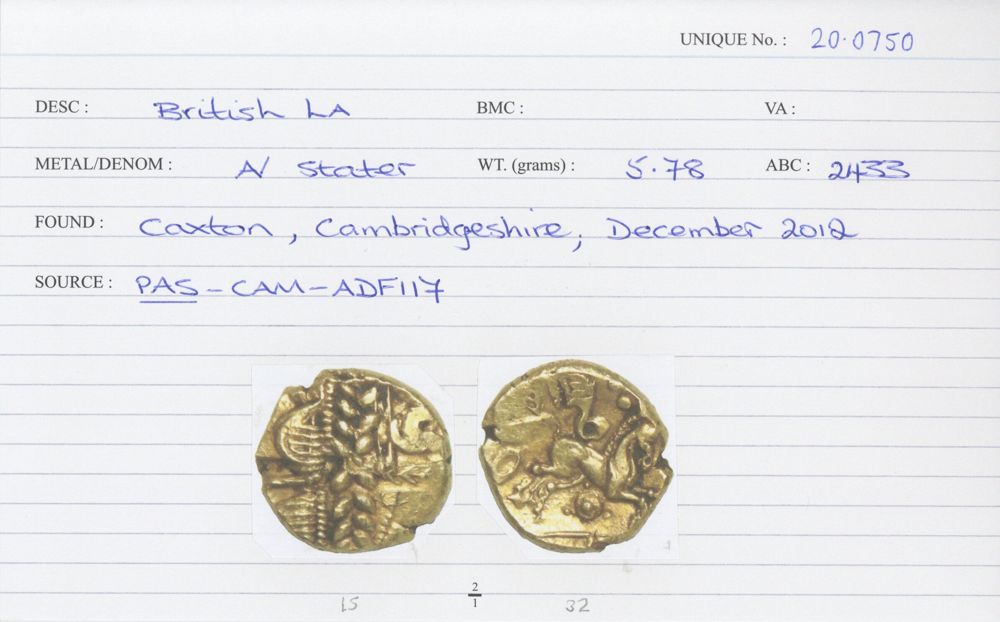 UNIQUE No. : 20·0750
DESC : British LA BMC : VA :
METAL/DENOM : A/ Stater WT. (grams) : 5.78 ABC : 2433
FOUND : Caxton, Cambridgeshire, December 2012
SOURCE : PAS-CAM-ADF117
2
15 1 32